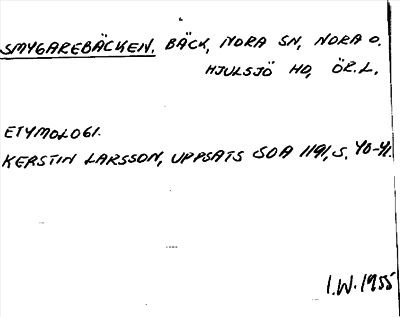 SMYGAREBÄCKEN. BÄCK, NORA SN, NORA O.
HJULSJÖ HD, ÖR.L.
ETYMOLOGI.
KERSTIN LARSSON, UPPSATS SOA 1191, S. 40-41.
I.W. 1955